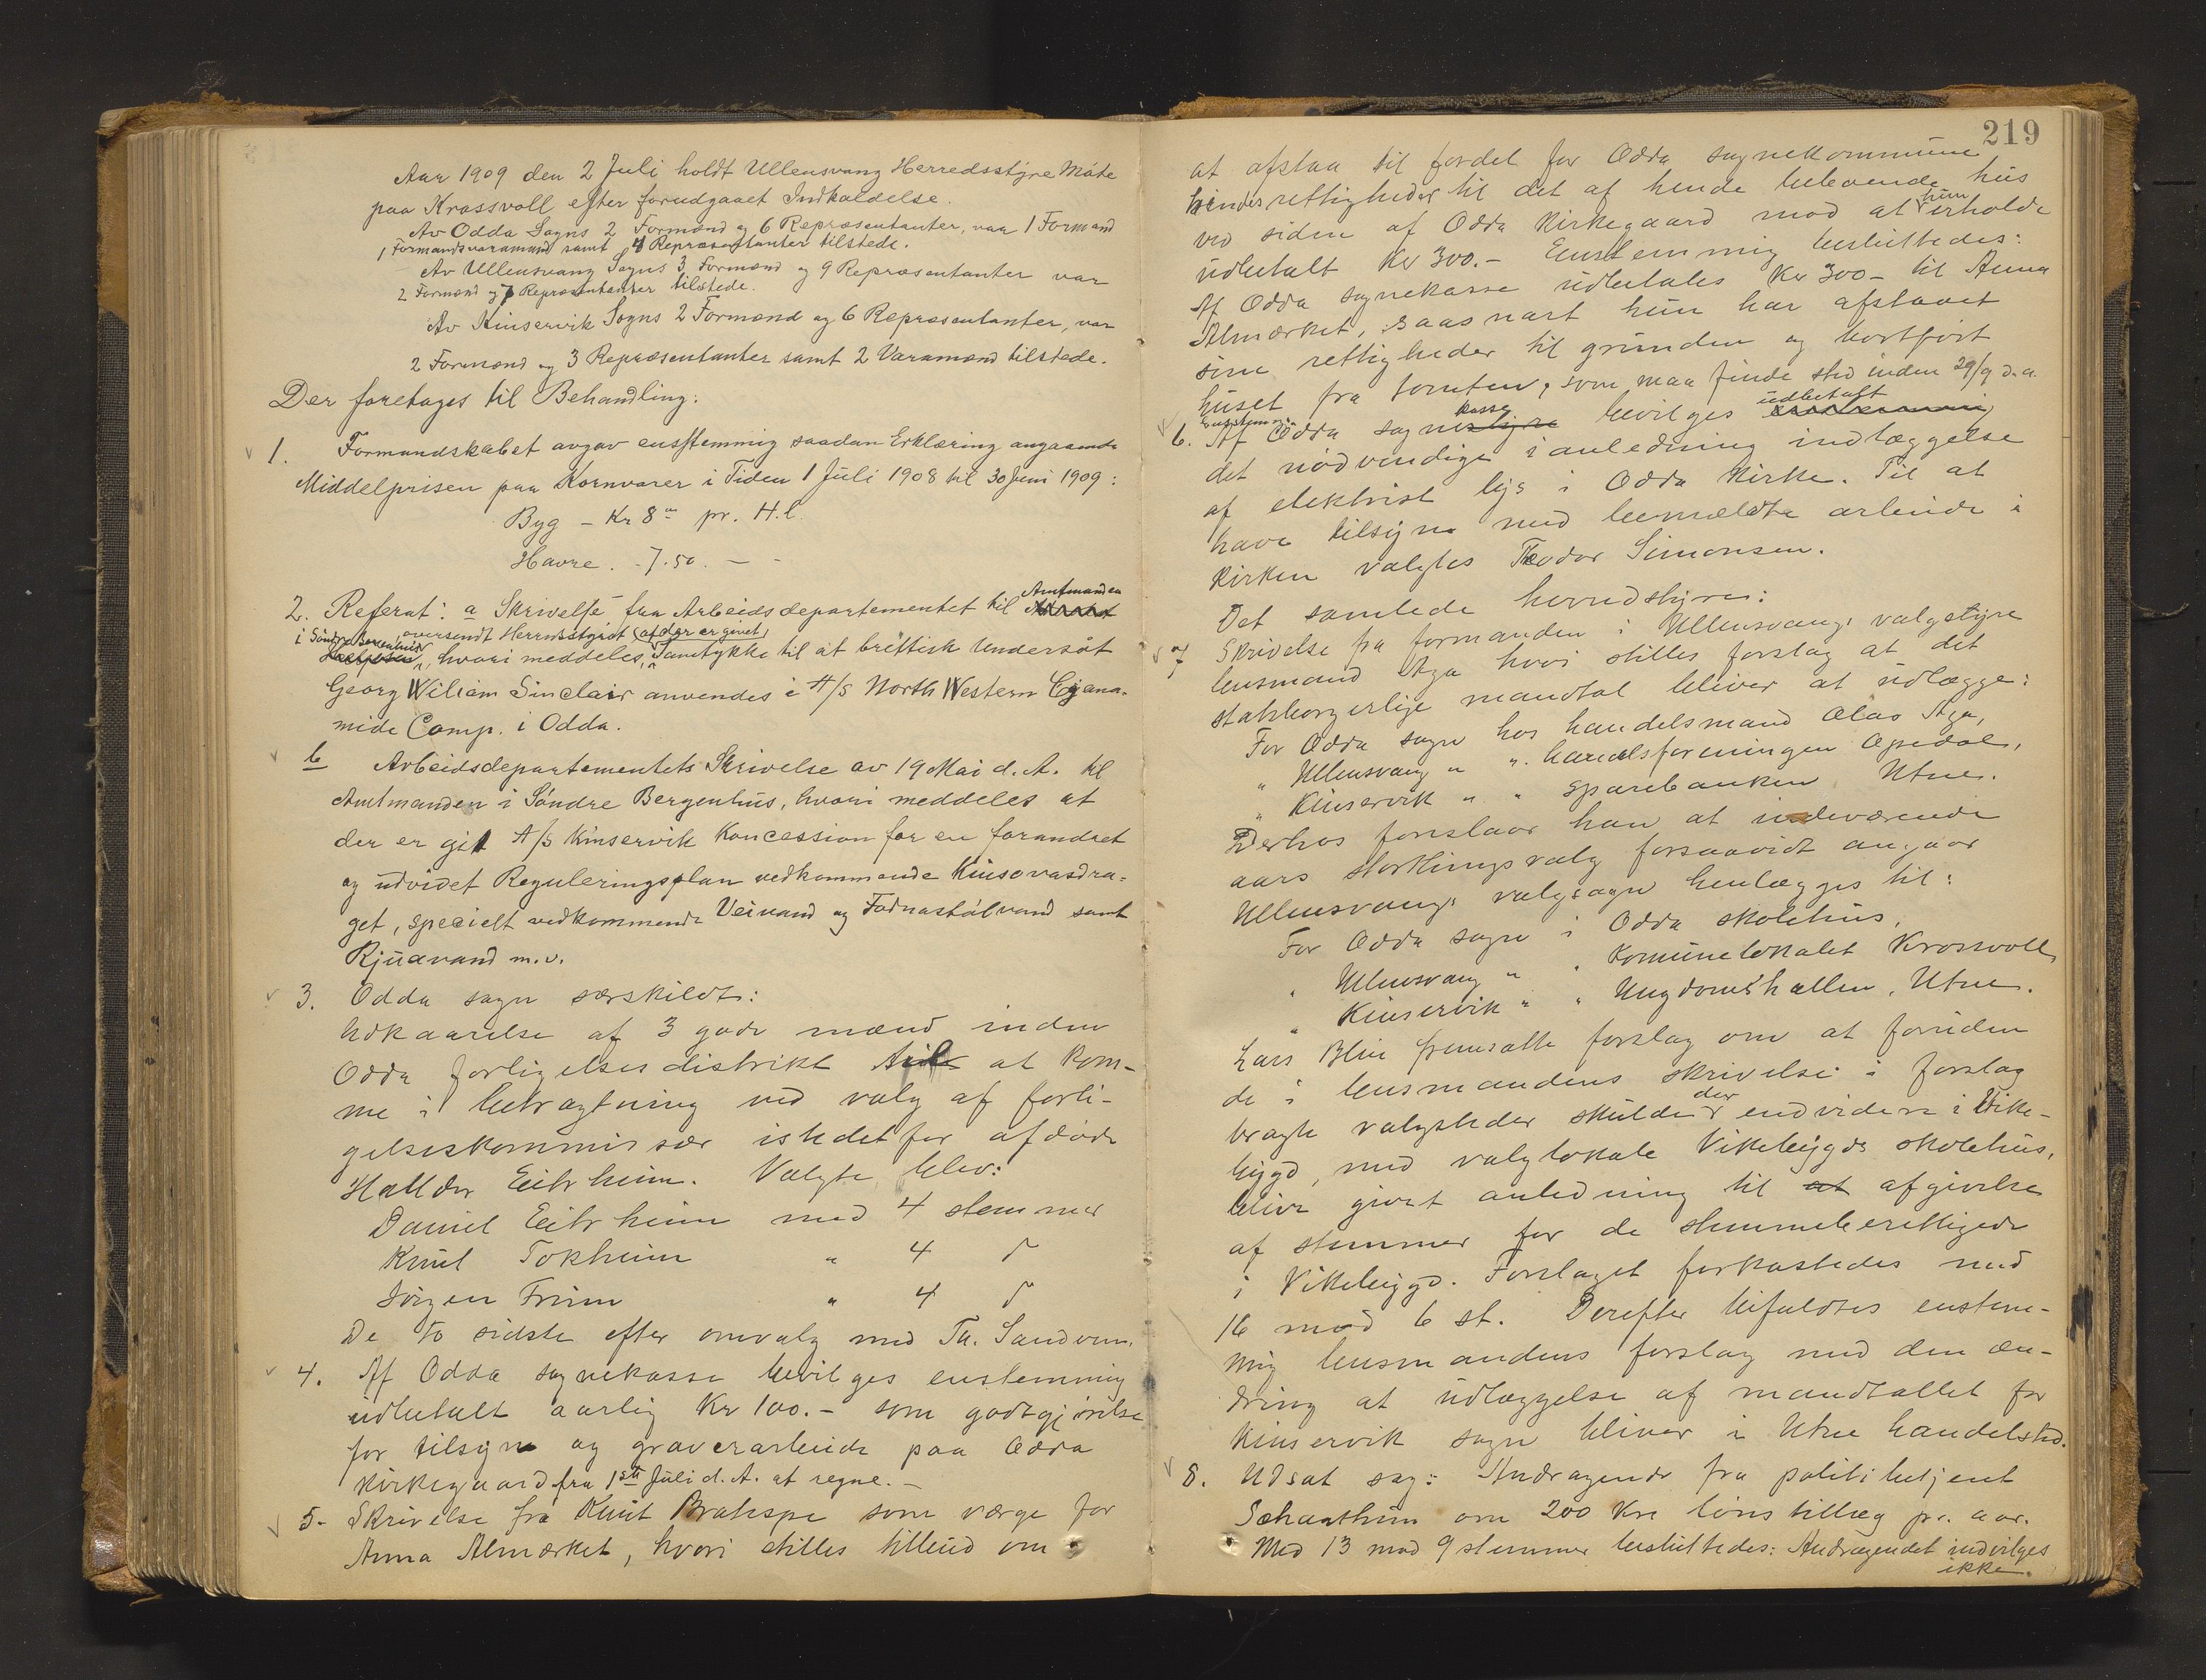 Aar 1909 den 2 Juli holdt Ullensvang Herredsstyre Møte
paa Krossvoll efter forudgaaet Indkaldelse.
Av Odda Sogns 2 Formænd og 6 Repræsentanter, var 1 Formand
1 Formandsvaramand samt 4 Repræsentanter tilstede.
Av Ullensvang Sogns 3 Formænd og 9 Repræsentanter var
2 Formænd og 7 Repræsentanter tilstede.
Av Kinservik Sogns 2 Formænd og 6 Repræsentanter, var
2 Formænd og 3 Repræsentanter samt 2 Varamænd tilstede.
Der foretages til Behandling:
1. Formandskabet avgav enstemmig saadan Erklæring angaaende
Middelprisen paa Kornvarer i Tiden 1 Juli 1908 til 30 Juni 1909:
Byg - Kr 8 00 pr. H.l.
Havre. - 7.50. - -
2. Referat: a Skrivelse fra Arbeidsdepartementet til Amtmanden
i Søndre Bergenhus, oversendt Herredsstyret (afdør er givet)
hvori meddeles, Samtykke til at brittisk Undersåt
Georg Wiliam Sinclair anvendes i A/S North Western Cyana-
mide Comp. i Odda.
b Arbeidsdepartementets Skrivelse av 19 Mai d. A. til
Amtmanden i Søndre Bergenhus, hvori meddeles at
der er git A/S Kinservik Koncession for en forandret
og udvidet Reguleringsplan vedkommende Kinsovasdra-
get, specielt vedkommende Veivand og Fodnastølvand samt
Rjuavand m.v.
3. Odda sogn særskildt:
Udkaarelse af 3 gode mænd inden
Odda forligelsesdistrikt til at kom-
me i betragtning ved valg af forli-
gelseskommissær istedetfor afdøde
Halldor Eitrheim. Valgte blev:
Daniel Eitrheim med 4 stemmer
Knut Tokheim " 4 d
Jørgen Freim " 4 d
De to sidste efter omvalg med Th. Sandven.
4. Af Odda sognekasse bevilges enstemmig
udbetalt aarlig Kr 100.- som godtgjørelse
for tilsyn og graverarbeide paa Odda
kirkegaard fra 1ste Juli d. A. at regne. -
5- Skrivelse fra Knut Bratespe som værge for
Anna Almerket, hvori stilles tilbud om
219
at afstaa til fordel for Odda sognekommune
hendes rettigheder til det af hende beboende hus
ved siden af Odda Kirkegaard mod at hun erholde
udbetalt Kr 300.- Enstemmig besluttedes:
Af Odda sognekasse udbetales Kr 300- til Anna
Almerket, saasnart hun har afstaaet
sine rettigheder til grunden og bortført
huset fra tomten, som maa finde sted inden 29/9 d.a.
6. Enstemmig Af Odda sognekasse bevilges udbetalt
det nødvendige i anledning indlæggelse
af elektrisk lys i Odda Kirke. Til at
have tilsyn med bemeldte arbeide i
Kirken valgtes Teodor Simonsen.
Det samlede herredstyre:
7 Skrivelse fra formanden i Ullensvangs valgstyre
lensmand Aga hvori stilles forslag at det
statsborgerlige mandtal bliver at udlægge:
For Odda sogn hos handelsmand Olav Aga,
" Ullensvang " " handelsforeningen Opedal,
" Kinservik " " Sparebanken Utne.
Derhos foreslaar han at indeværende
aars stortingsvalg forsaavidt angaar
Ullensvangs valgsogn henlægges til:
For Odda sogn i Odda skolehus,
" Ullensvang " " Komunelokalet Krossvoll,
" Kinservik " " Ungdomshallen, Utne.
Lars Blie fremsatte forslag om at foruden
de i lensmandens skrivelse i forslag
bragte valgsteder skulde der endvidere i Vike-
bygd, med valglokale Vikebygds skolehus,
blive givet anledning til at afgivelse
af stemmer for de stemmeberettigede
i Vikebygd. Forslaget forkastedes med
16 mod 6 st. Derefter bifaldtes enstem-
mig lensmandens forslag med den æn-
dring at udlæggelse af mandtallet for
Kinservik sogn bliver i Utne handelsted.
8. Udsat sag: Andragende fra politibetjent
om 200 Kr lønstillæg pr. aar.
Med 13 mod 9 stemmer besluttedes: Andragendet indvilges
ikke.